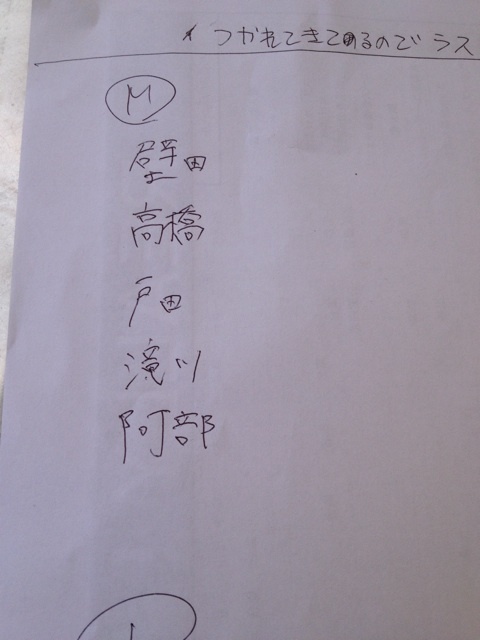 つかれてきてるのでラス
M
壁田
高橋
戸田
滝川
阿部